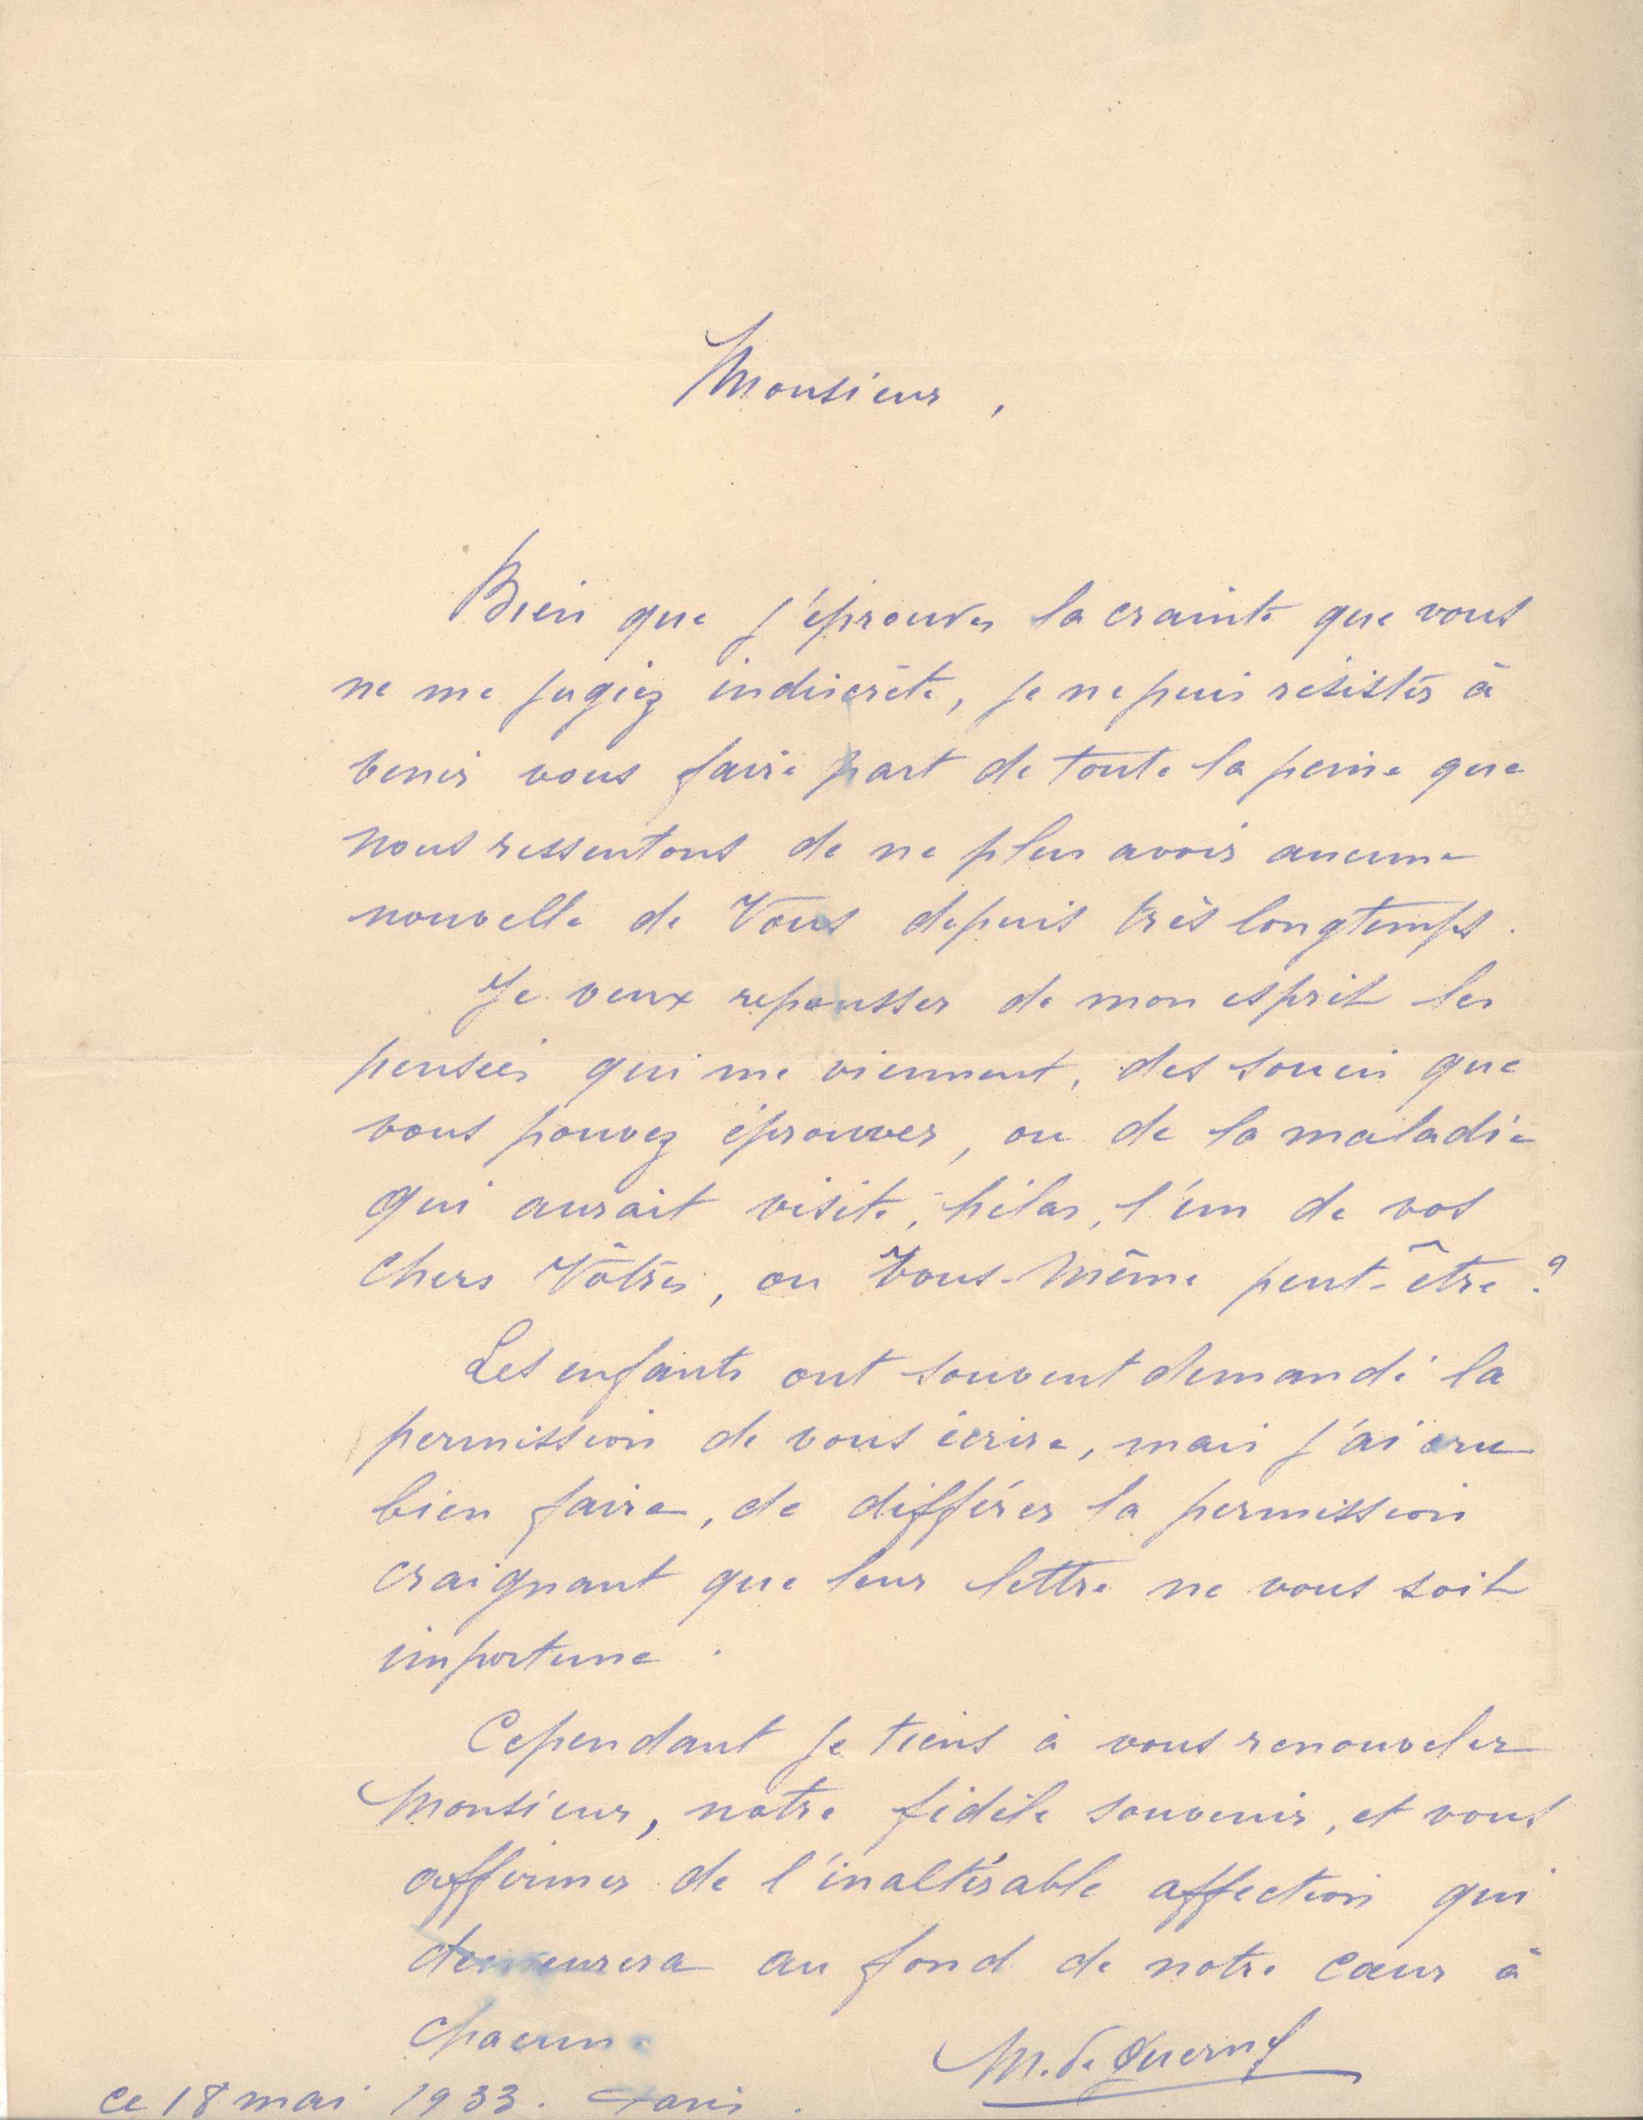 Monsieur,
Bien que j'éprouve la crainte que vous
ne me jugiez indiscrète, je ne puis résister à
venir vous faire part de toute la peine que
nous ressentons de ne plus avoir aucune
nouvelle de Vous depuis très longtemps.
Je veux repousser de mon esprit les
pensées qui me viennent, des soucis que
vous pouvez éprouver, ou de la maladie
qui aurait visité, hélas, l'un de vos
chers Vôtres, ou Vous-Même peut-être ?
Les enfants ont souvent demandé la
permission de vous écrire, mais j'ai cru
bien faire, de différer la permission
craignant que leur lettre ne vous soit
importune.
Cependant je tiens à vous renouveler
Monsieur, notre fidèle souvenir, et vous
affirmer de l'inaltérable affection qui
demeurera au fond de notre cœur à
chacun.
M. de
ce 18 mai 1933. Paris.